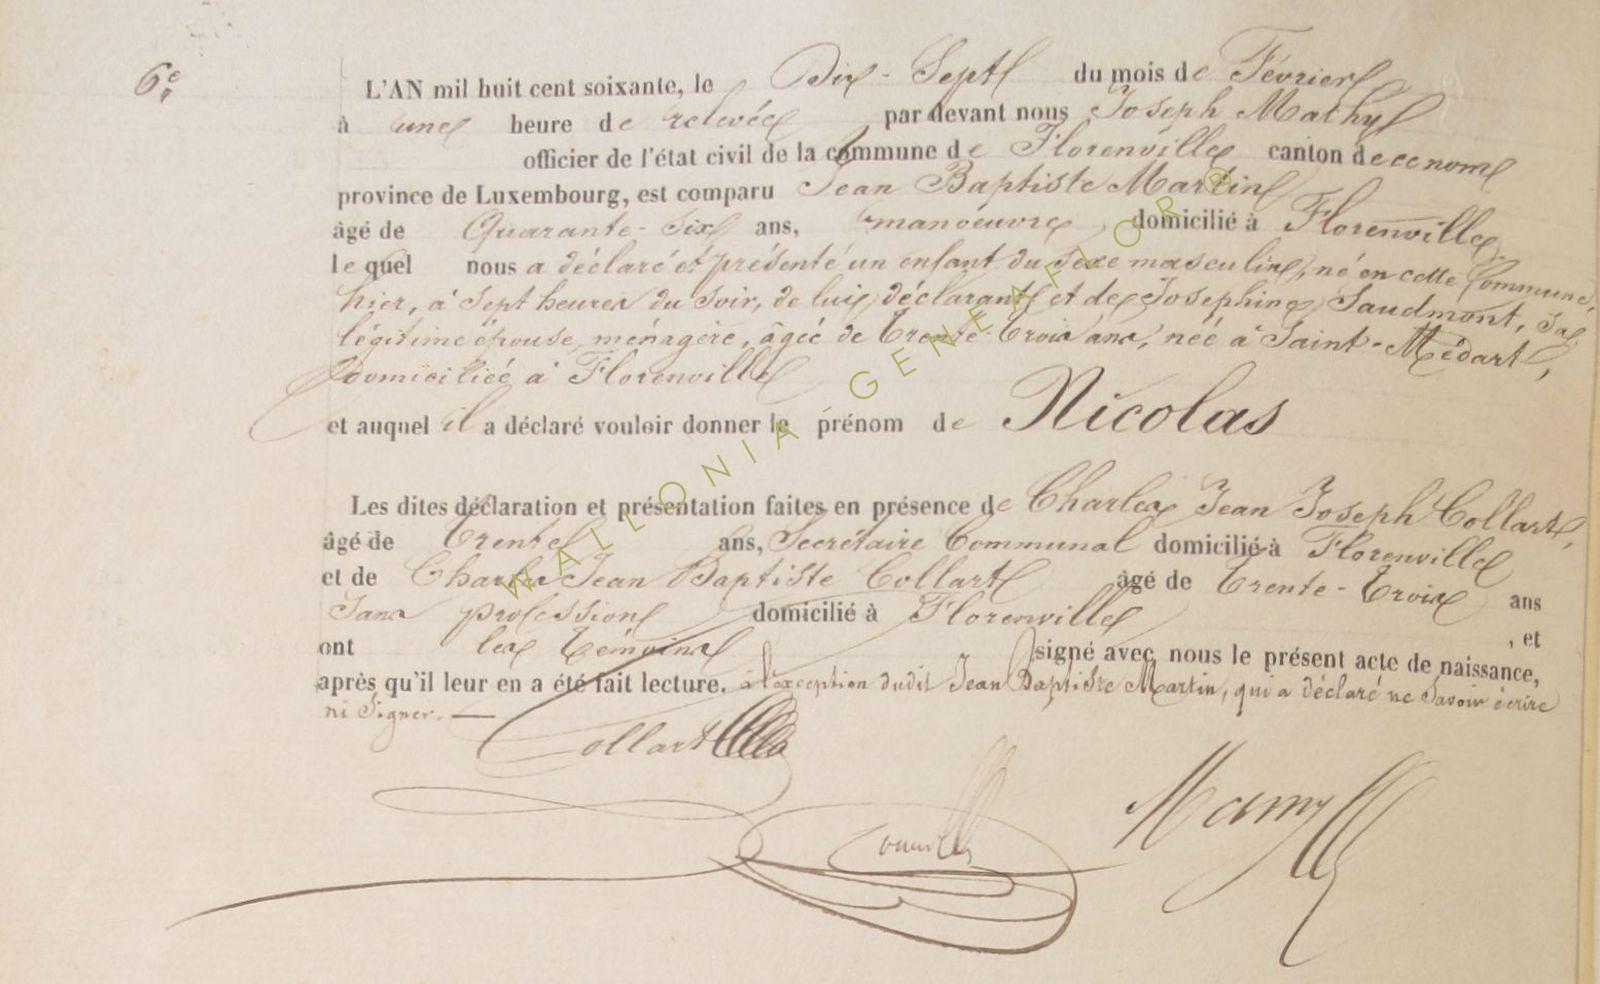 6e
L'AN mil huit cent soixante, le Dix-Sept du mois de Février
à une heure de relevée par devant nous Joseph Mathy
officier de l'état civil de la commune de Florenville canton de ce nom
province de Luxembourg, est comparu Jean Baptiste Martin
âgé de Quarante-Six ans, manoeuvre, domicilié à Florenville
lequel nous a déclaré et présenté un enfant du sexe masculin, né en cette Commune,
hier, à Sept heures du Soir, de lui, déclarant et de Josephine Saudmont, Sa
légitime épouse, ménagère, âgée de Trente-Trois ans, née à Saint-Médart,
domiciliée à Florenville
et auquel il a déclaré vouloir donner le prénom de Nicolas
Les dites déclaration et présentation faites en présence de Charles Jean Joseph Collart,
âgé de Trente ans, Secrétaire Communal domicilié à Florenville
et de Charles Jean Baptiste Collart âgé de Trente-Trois ans
Sans profession domicilié à Florenville , et
ont les Témoins signé avec nous le présent acte de naissance,
après qu'il leur en a été fait lecture. à l'exception dudit Jean Baptiste Martin, qui a déclaré ne Savoir écrire
ni Signer. —
Collart
WALLONIA-GENEAFLOR®